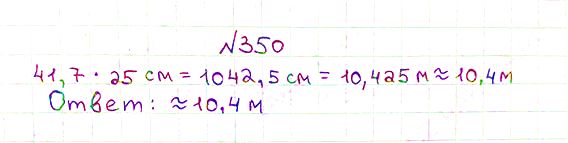 №350
41,7 · 25 см = 1042,5 см = 10,425 м ≈ 10,4 м
Ответ: ≈ 10,4 м